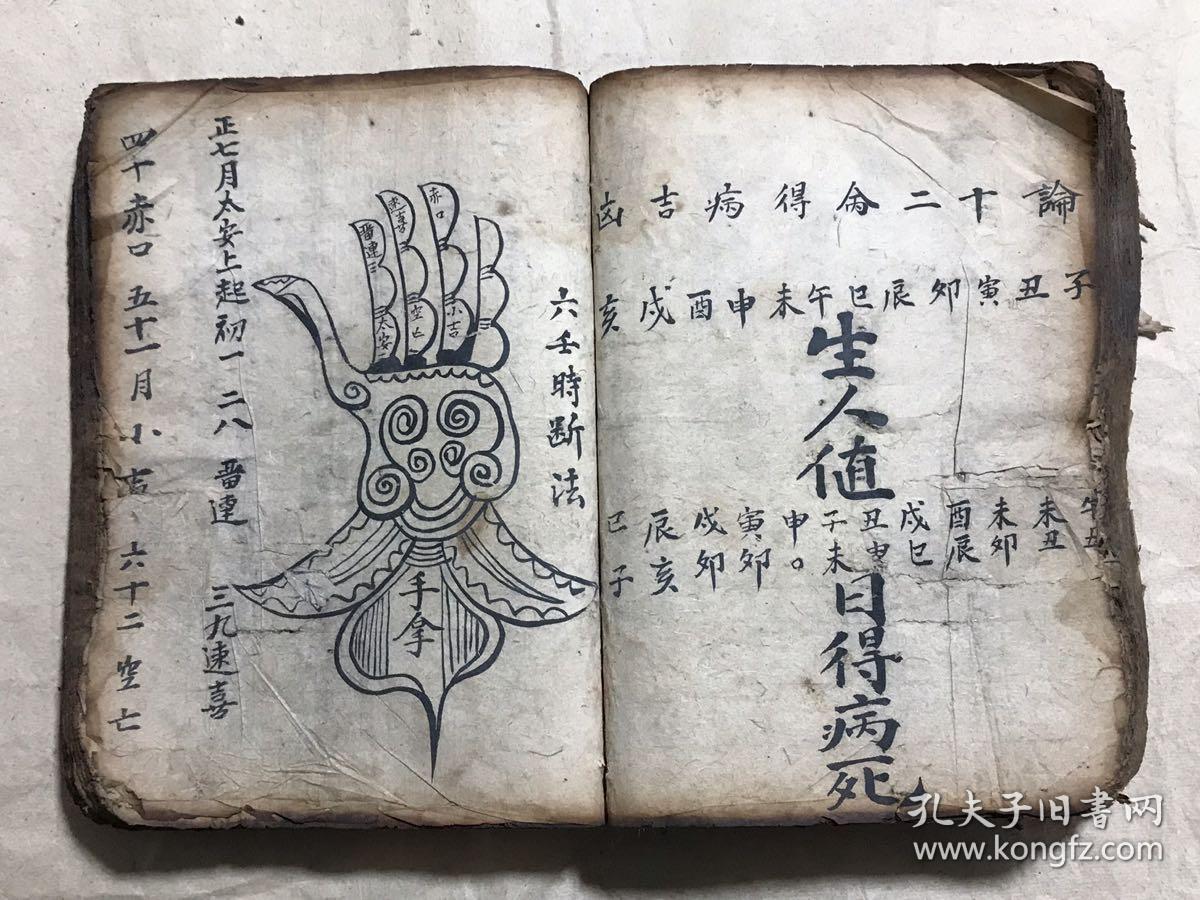 論十二肏得病吉凶
子丑寅卯辰巳午未申酉戌亥
生人值
未丑
未卯
酉辰
戌巳
丑申
子未
申。
寅卯
戌卯
辰亥
巳子
日得病死
六壬時断法
赤口
速喜
畱連
小吉
空亡
太安
手拿
正七月太安上起初一 二八畱連 三九速喜
四十赤口 五十一月小吉 六十二空亡
孔夫子旧書网
www.kongfz.com